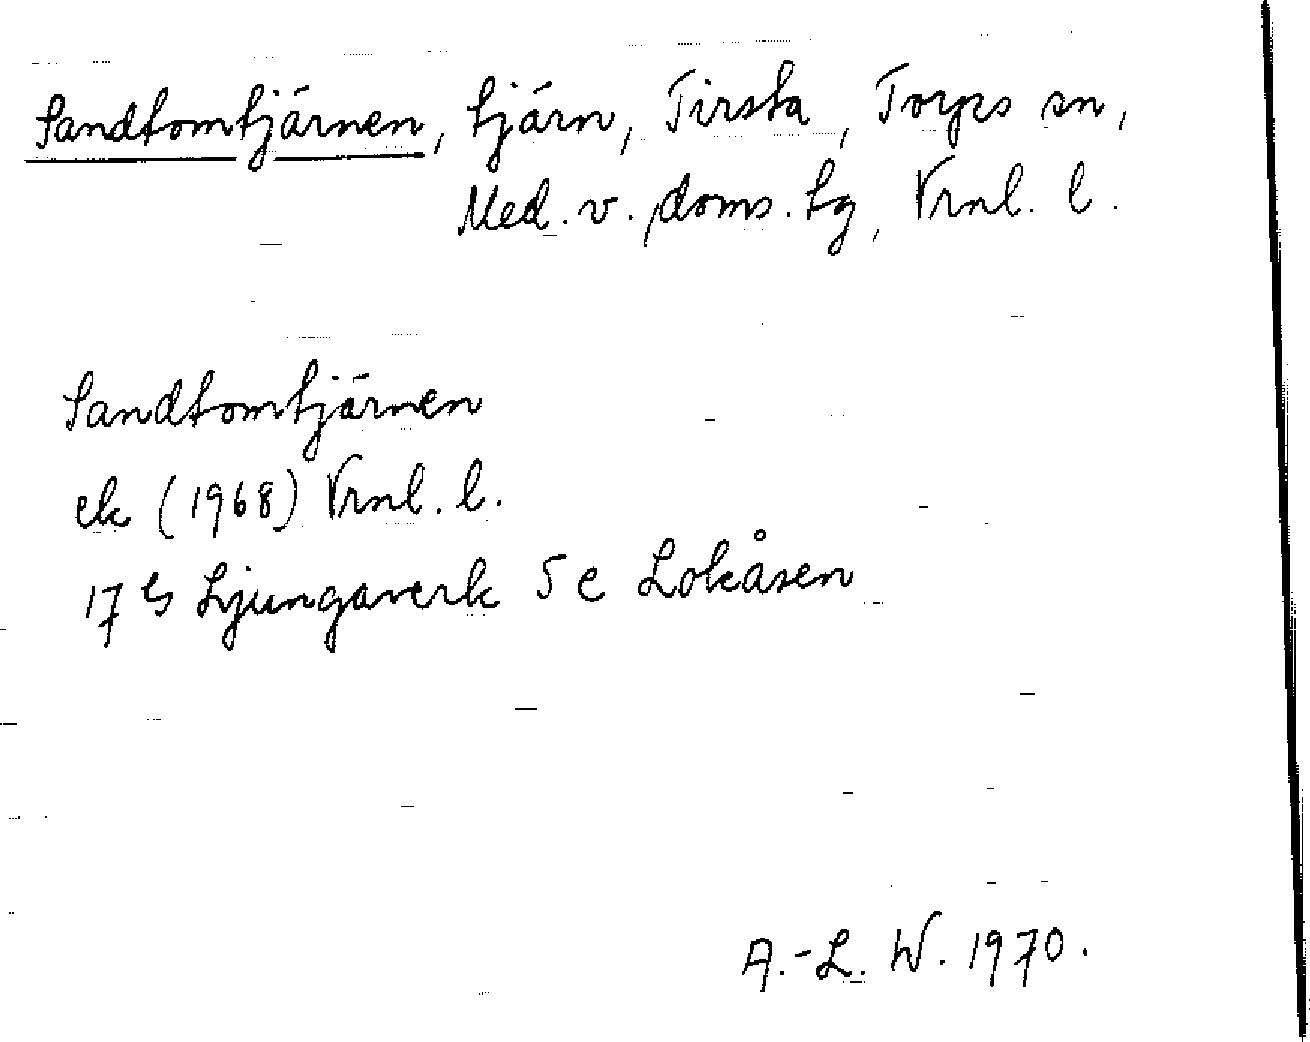 Sandtomtjärnen, tjärn, Tirsta, Torps sn,
Med. v. doms. tg, Vrnl. l.
Sandtomtjärnen
ek (1968) Vrnl. l.
17 G Ljungaverk 5 e Lokåsen
A.-L. W. 1970.